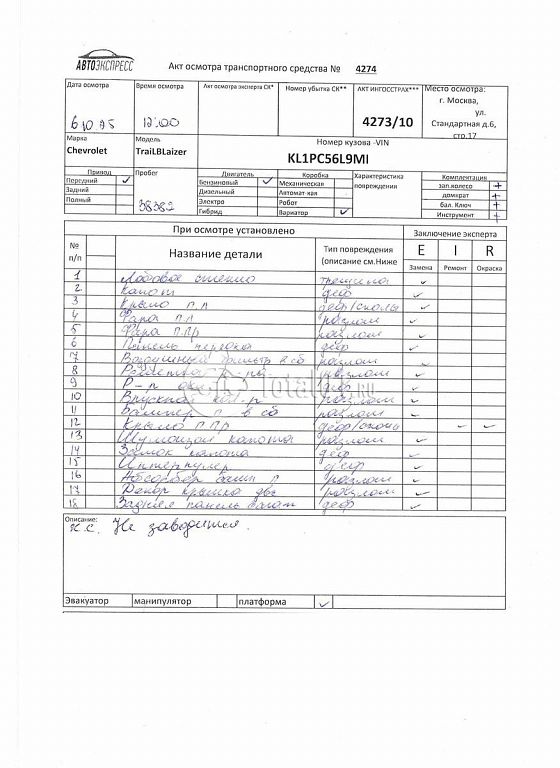 АВТОЭКСПРЕСС
Акт осмотра транспортного средства № 4274
Дата осмотра Время осмотра Акт осмотра эксперта СК* Номер убытка СК** АКТ ИНГОССТРАХ*** Место осмотра:
12:00 4273/10 г. Москва,
ул.
Стандартная д.6,
стр.17
Марка Модель Номер кузова -VIN
Chevrolet TraiLBLaizer KL1PC56L9MI
Привод Пробег Двигатель Коробка Характеристика повреждения Комплектация
Передний Бензиновый Механическая зап.колесо +
Задний Дизельный Автомат-кая домкрат +
Полный 38382 Электро Робот бал. Ключ +
Гибрид Вариатор Инструмент +
При осмотре установлено Заключение эксперта
№ п/п Название детали Тип повреждения (описание см.Ниже E I R
Замена Ремонт Окраска
1 Лобовое стекло трещина
2 Капот деф
3 Крыло П Л деф/сколы
4 Фара П Л разлом
5 Фара П ПР разлом
6 Панель передка деф
7 Воздушный фильтр в сб разлом
8 разлом
9 деф
10 Впускной кол-р разлом
11 Бампер П в сб разлом
12 Крыло П ПР деф/сколы
13 Шумоизол капота разлом
14 Замок капота деф
15 Интеркулер деф
16 Абсорбер бамп П разлом
17 Декор крышка двс разлом
18 Задняя панель деф
totalcar.ru
Описание:
К.С. Не заводится.
Эвакуатор манипулятор платформа